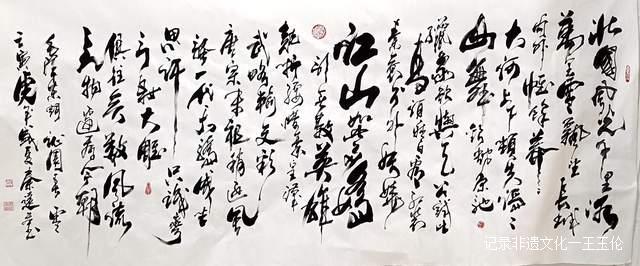 北國風光千里冰
封萬里雪飄望長城
內外惟餘莽莽
大河上下頓失滔滔
山舞銀蛇原馳
蠟象欲與天公試比
高須晴日看紅裝
素裹分外妖嬈
江山如此多嬌
引無數英雄
競折腰惜秦皇漢
武略輸文彩
唐宗宋祖稍遜風
騷一代天驕成吉
思汗只識彎
弓射大雕
俱往矣數風流
人物還看今朝
毛澤東詞沁園春雪
虎年
记录非遗文化一王玉伦